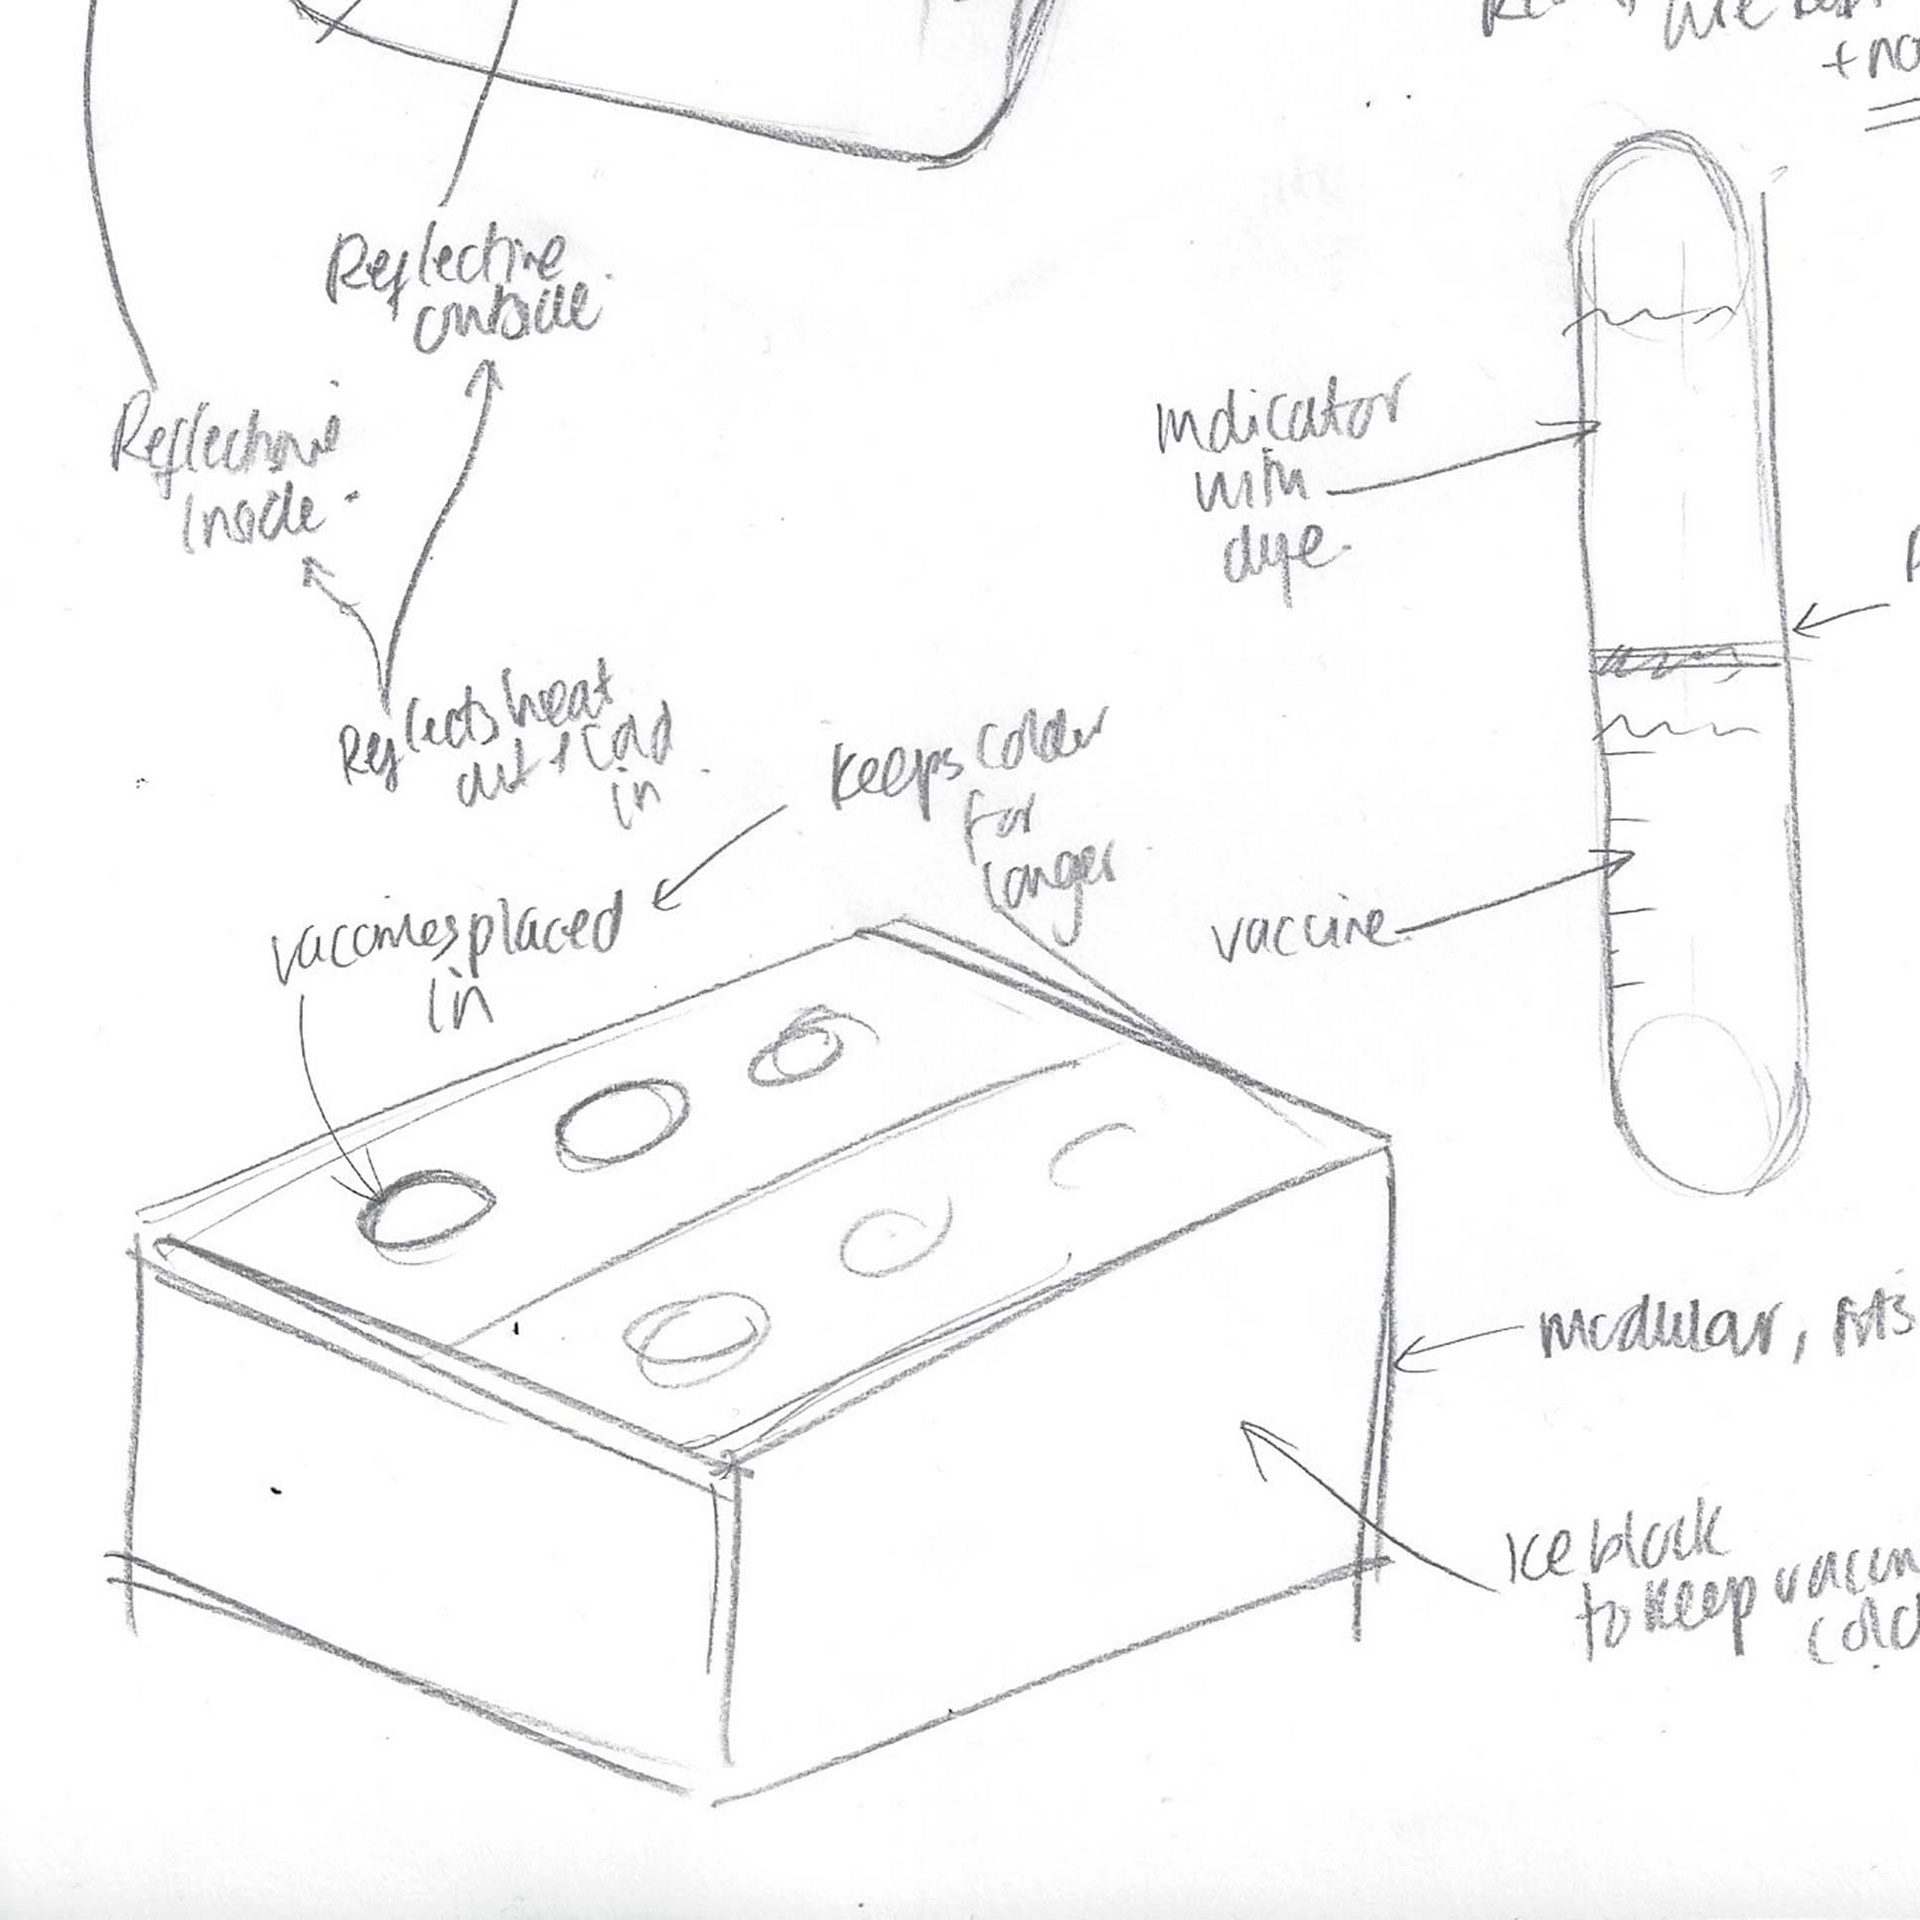 + no
Reflective
outside.
Reflective
Inside.
Indicator
with
dye.
Reflects heat
out + cold
in.
Keeps colder
for
longer
vaccines placed
in
vaccine
modular, fits
Ice block
to keep vaccin
cold